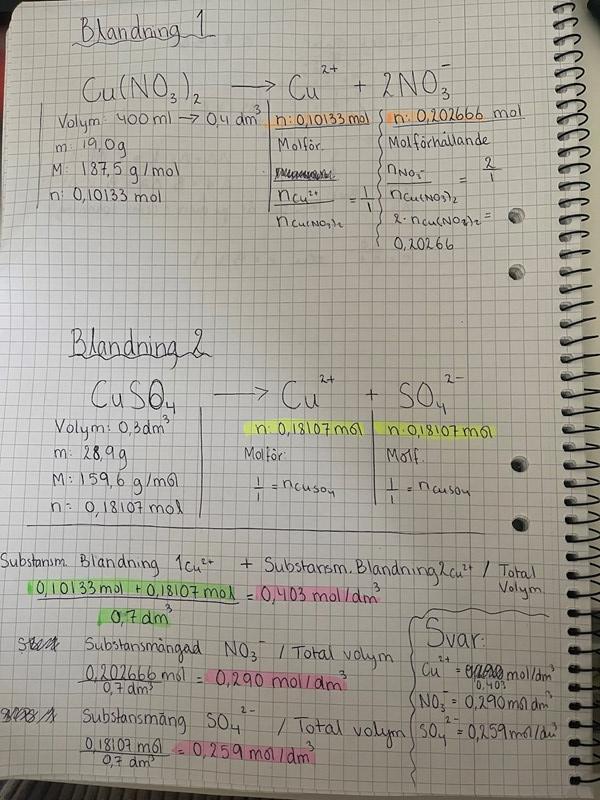 Blandning 1
Cu(NO₃)₂ → Cu²⁺ + 2NO₃⁻
Volym: 400 ml → 0,4 dm³
m: 19,0g
M: 187,5 g/mol
n: 0,10133 mol
n: 0,10133 mol
Molför.
nCu²⁺ / nCu(NO₃)₂ = 1/1
n: 0,202666 mol
Molförhållande
nNO₃⁻ / nCu(NO₃)₂ = 2/1
2·nCu(NO₃)₂ =
0,20266
Blandning 2
CuSO₄ → Cu²⁺ + SO₄²⁻
Volym: 0,3dm³
m: 28,9g
M: 159,6 g/mol
n= 0,18107 mol
n: 0,18107 mol
Molför:
1/1 = nCuSO₄
n: 0,18107 mol
Molf.
1/1 = nCuSO₄
Substansm. Blandning 1Cu²⁺ + Substansm. Blandning2Cu²⁺ / Total
Volym.
0,10133 mol + 0,18107 mol / 0,7 dm³ = 0,403 mol/dm³
Substansmängad NO₃⁻ / Total volym
0,202666 mol / 0,7 dm³ = 0,290 mol/dm³
Substansmäng SO₄²⁻ / Total volym
0,18107 mol / 0,7 dm³ = 0,259 mol/dm³
Svar:
Cu²⁺ = 0,403 mol/dm³
NO₃⁻ = 0,290 mol dm³
SO₄²⁻ = 0,259 mol/dm³